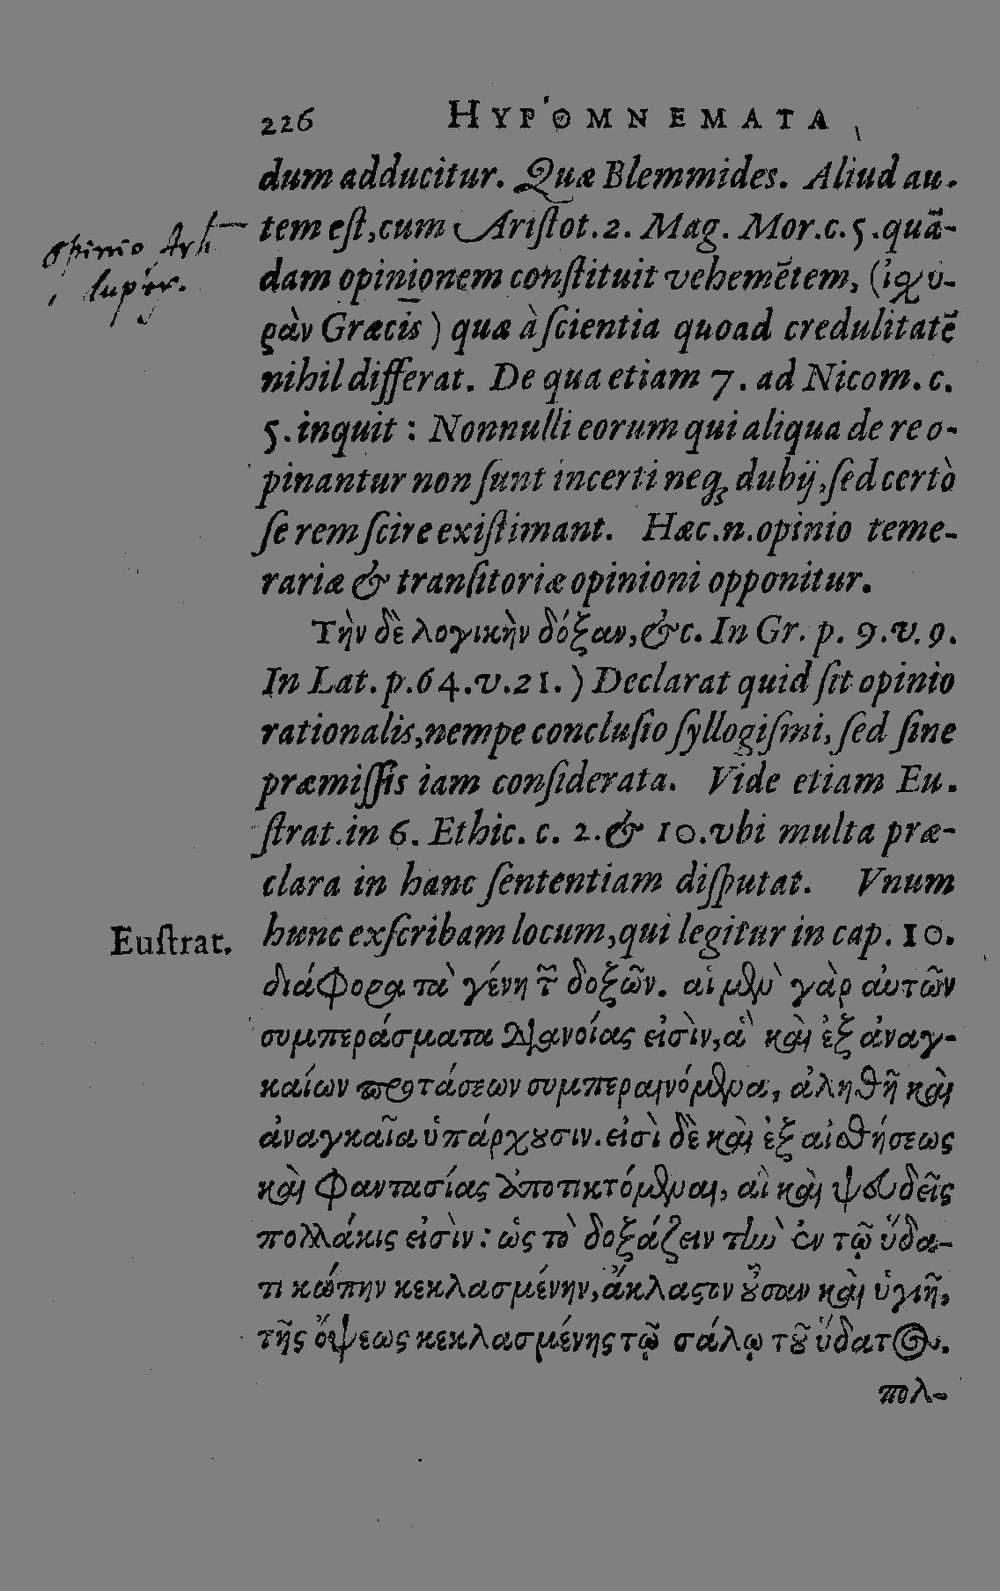 226 HYPOMNEMATA
dum adducitur. Quæ Blemmides. Aliud au-
tem eſt, cum Ariſtot. 2. Mag. Mor. c. 5. quā-
opinio
dam opinionem conſtituit vehemētem, (ἰχυ-
ρὰν Græcis) quæ à ſcientia quoad credulitatē
nihil differat. De qua etiam 7. ad Nicom. c.
5. inquit: Nonnulli eorum qui aliqua de re o-
pinantur non ſunt incerti neq; dubij, ſed certò
ſe rem ſcire exiſtimant. Hæc .n. opinio teme-
rariæ & tranſitoriæ opinioni opponitur.
Τὴν δὲ λογικὴν δόξαν, &c. In Gr. p. 9. v. 9.
In Lat. p. 64. v. 21.) Declarat quid ſit opinio
rationalis, nempe concluſio ſyllogiſmi, ſed ſine
præmiſſis iam conſiderata. Vide etiam Eu-
ſtrat. in 6. Ethic. c. 2. & 10. vbi multa præ-
clara in hanc ſententiam diſputat. Vnum
Euſtrat. hunc exſcribam locum, qui legitur in cap. 10.
διάφορα τὰ γένη τῶν δοξῶν. αἱ μὲν γὰρ αὐτῶν
συμπεράσματα διανοίας εἰσὶν, αἳ καὶ ἐξ ἀναγ-
καίων προτάσεων συμπεραινόμεναι, ἀληθῆ καὶ
ἀναγκαῖα ὑπάρχουσιν. εἰσὶ δὲ καὶ ἐξ αἰσθήσεως
καὶ φαντασίας ἀποτικτόμεναι, αἳ καὶ ψευδεῖς
πολλάκις εἰσὶν: ὡς τὸ δοξάζειν τὴν ἐν τῷ ὕδα-
τι κώπην κεκλασμένην, ἄκλαστον οὖσαν καὶ ὑγιῆ,
τῆς ὄψεως κεκλασμένης τῷ σάλῳ τοῦ ὕδατος.
πολ-